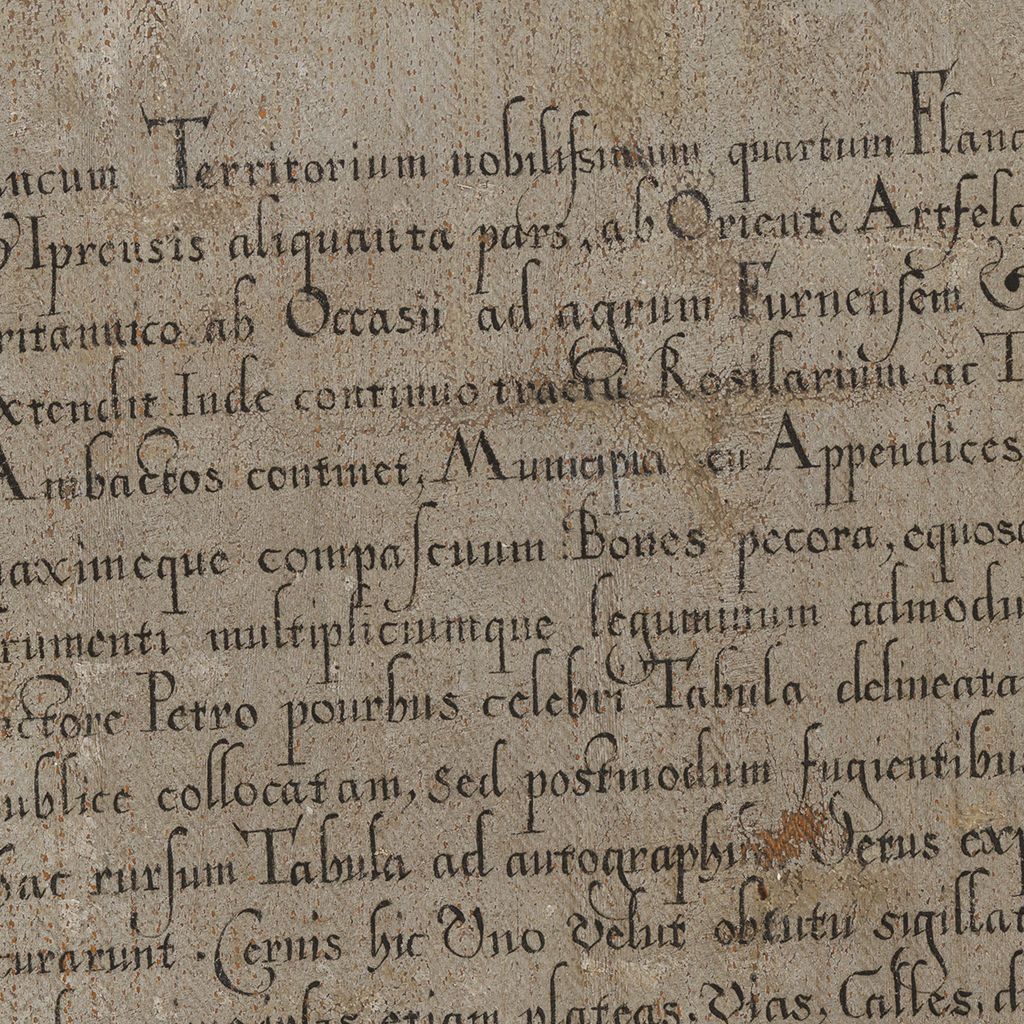 ncum Territorium nobilissimum quartum Fland
Iprensis aliquanta pars, ab Oriente Artfeld
ritannico ab Occasu ad agrum Furnensem &
xtendit Inde continuo tractu Rosilarium ac T
Ambactos continet, Municipia seu Appendices
maximeque compascuum Boues pecora, equosq
rumenti multipliciumque leguminum admodu
uctore Petro pourbus celebri Tabula delineata
ublice collocatam, sed postmodum fugientibus
hac rursum Tabula ad autographi Vetus exp
curarunt . Cernis hic Uno velut obtutu sigillat
etiam plateas, Vias, Calles, d